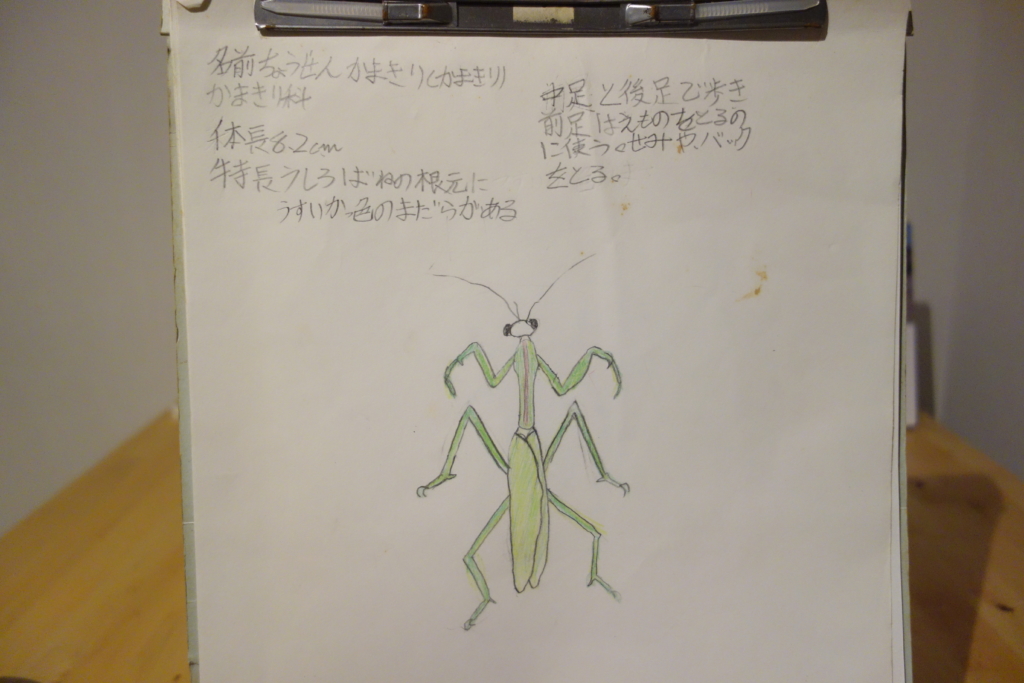 名前ちょうせんかまきり(かまきり)
かまきり科
体長8.2cm
特長うしろばねの根元に
うすいかっ色のまだらがある
中足と後足で歩き
前足はえものをとるの
に使う。せみや、バック
をとる。